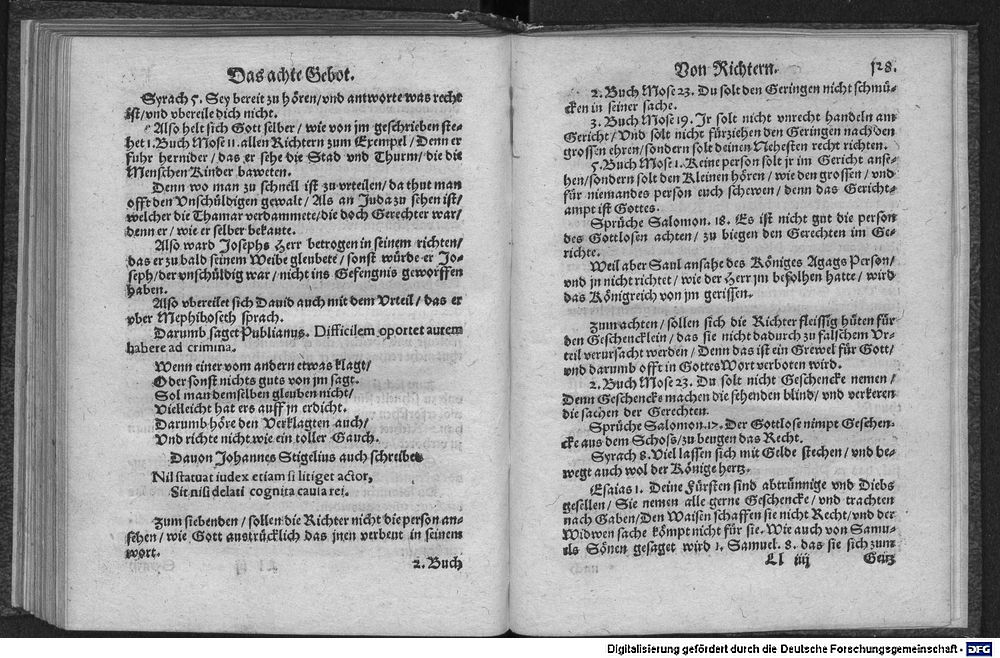 Das achte Gebot.
Syrach 5. Sey bereit zu hören/vnd antworte was recht
ist/vnd vbereile dich nicht.
Also helt sich Gott selber / wie von jm geschrieben ste-
het 1. Buch Mose 11. allen Richtern zum Exempel / Denn er
fuhr hernider / das er sehe die Stad vnd Thurm / die die
Menschen Kinder baweten.
Denn wo man zu schnell ist zu vrteilen / da thut man
offt den Vnschüldigen gewalt / Als an Juda zu sehen ist/
welcher die Thamar verdammete/die doch Gerechter war/
denn er / wie er selber bekante.
Also ward Josephs Herr betrogen in seinem richten/
das er zu bald seinem Weibe gleubete / sonst würde er Jo-
seph/der vnschüldig war / nicht ins Gefengnis geworffen
haben.
Also vbereilet sich Dauid auch mit dem Vrteil / das er
vber Mephiboseth sprach.
Darumb saget Publianus. Difficilem oportet autem
habere ad crimina.
Wenn einer vom andern etwas klagt/
Oder sonst nichts guts von jm sagt.
Sol man demselben gleuben nicht/
Vielleicht hat ers auff jn erdicht.
Darumb höre den Verklagten auch/
Vnd richte nicht wie ein toller Gauch.
Dauon Johannes Stigelius auch schreibet
Nil statuat iudex etiam si litiget actor,
Sit nisi delati cognita causa rei.
Zum siebenden / sollen die Richter nicht die person an-
sehen / wie Gott austrücklich das jnen verbeut in seinem
wort.
2. Buch
Von Richtern. 128.
2. Buch Mose 23. Du solt den Geringen nicht schmü-
cken in seiner sache.
3. Buch Mose 19. Jr solt nicht vnrecht handeln am
Gericht / Vnd solt nicht fürziehen den Geringen nach den
grossen ehren / sondern solt deinen Nehesten recht richten.
5. Buch Mose 1. Keine person solt jr im Gericht anse-
hen/sondern solt den Kleinen hören / wie den grossen / vnd
für niemandes person euch schewen / denn das Gericht-
ampt ist Gottes.
Sprüche Salomon. 18. Es ist nicht gut die person
des Gottlosen achten / zu biegen den Gerechten im Ge-
richte.
Weil aber Saul ansahe des Königes Agags Person/
vnd jn nicht richtet / wie der Herr jm befolhen hatte / wird
das Königreich von jm gerissen.
Zum achten / sollen sich die Richter fleissig hüten für
den Geschencklein / das sie nicht dadurch zu falschem Vr-
teil verursacht werden / Denn das ist ein Grewel für Gott/
vnd darumb offt in Gottes Wort verboten wird.
2. Buch Mose 23. Du solt nicht Geschencke nemen/
Denn Geschencke machen die sehenden blind / vnd verkeren
die sachen der Gerechten.
Sprüche Salomon. 17. Der Gottlose nimpt Geschen-
cke aus dem Schoss/zu beugen das Recht.
Syrach 8. Viel lassen sich mit Gelde stechen / vnd be-
wegt auch wol der Könige hertz.
Esaias 1. Deine Fürsten sind abtrünnige vnd Diebs
gesellen / Sie nemen alle gerne Geschencke / vnd trachten
nach Gaben / Den Waisen schaffen sie nicht Recht / vnd der
Widwen sache kömpt nicht für sie. Wie auch von Samu-
els Sönen gesaget wird 1. Samuel. 8. das sie sich zum
Ll iiij Geitz
Digitalisierung gefördert durch die Deutsche Forschungsgemeinschaft - DFG